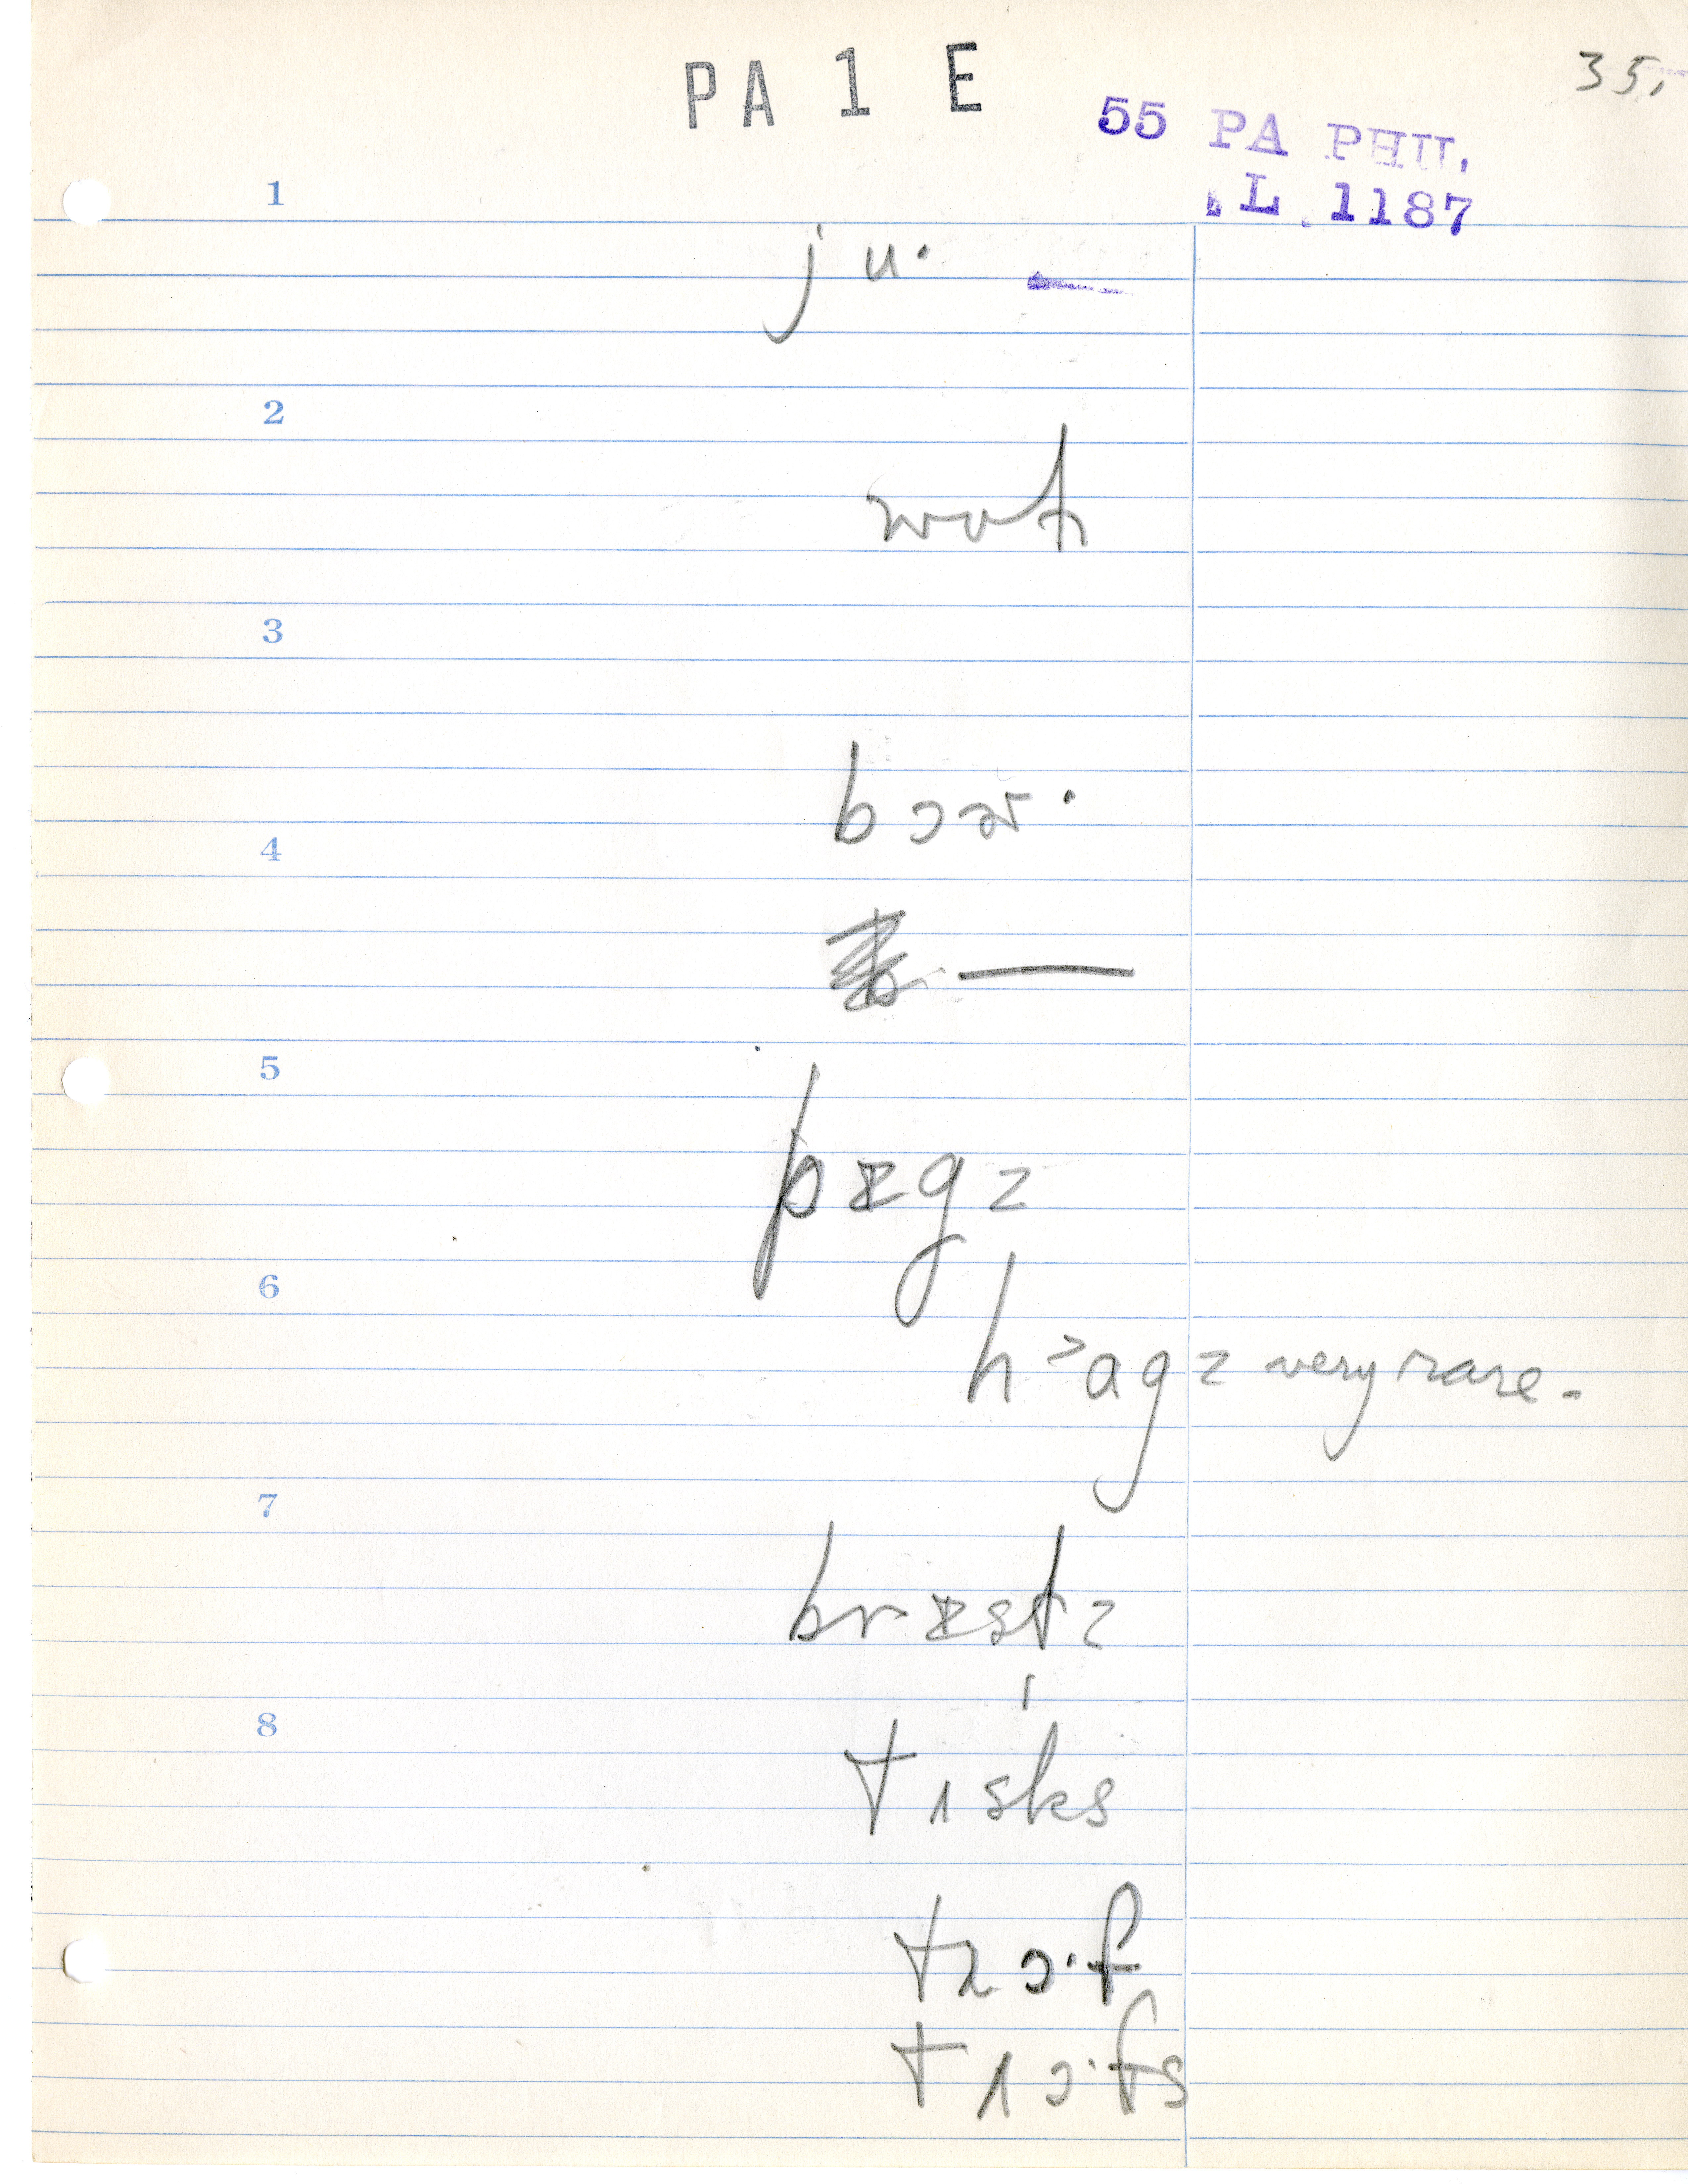 PA 1 E
35.
55 PA PHIL.
L. 1187
1
ju·
2
wɒt
3
bɔɚ·
4
—
5
pɪgz
6
h³agz very rare.
7
brɪstz
8
tısks
trɔ·f
trɔ·fs